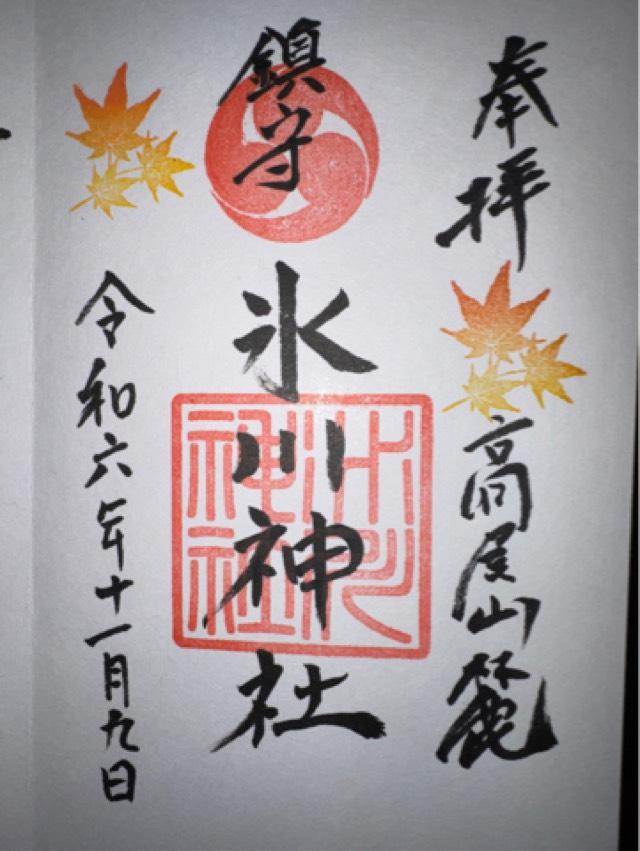 奉拝
高尾山麓
鎮守
氷川神社
氷川神社
令和六年十一月九日